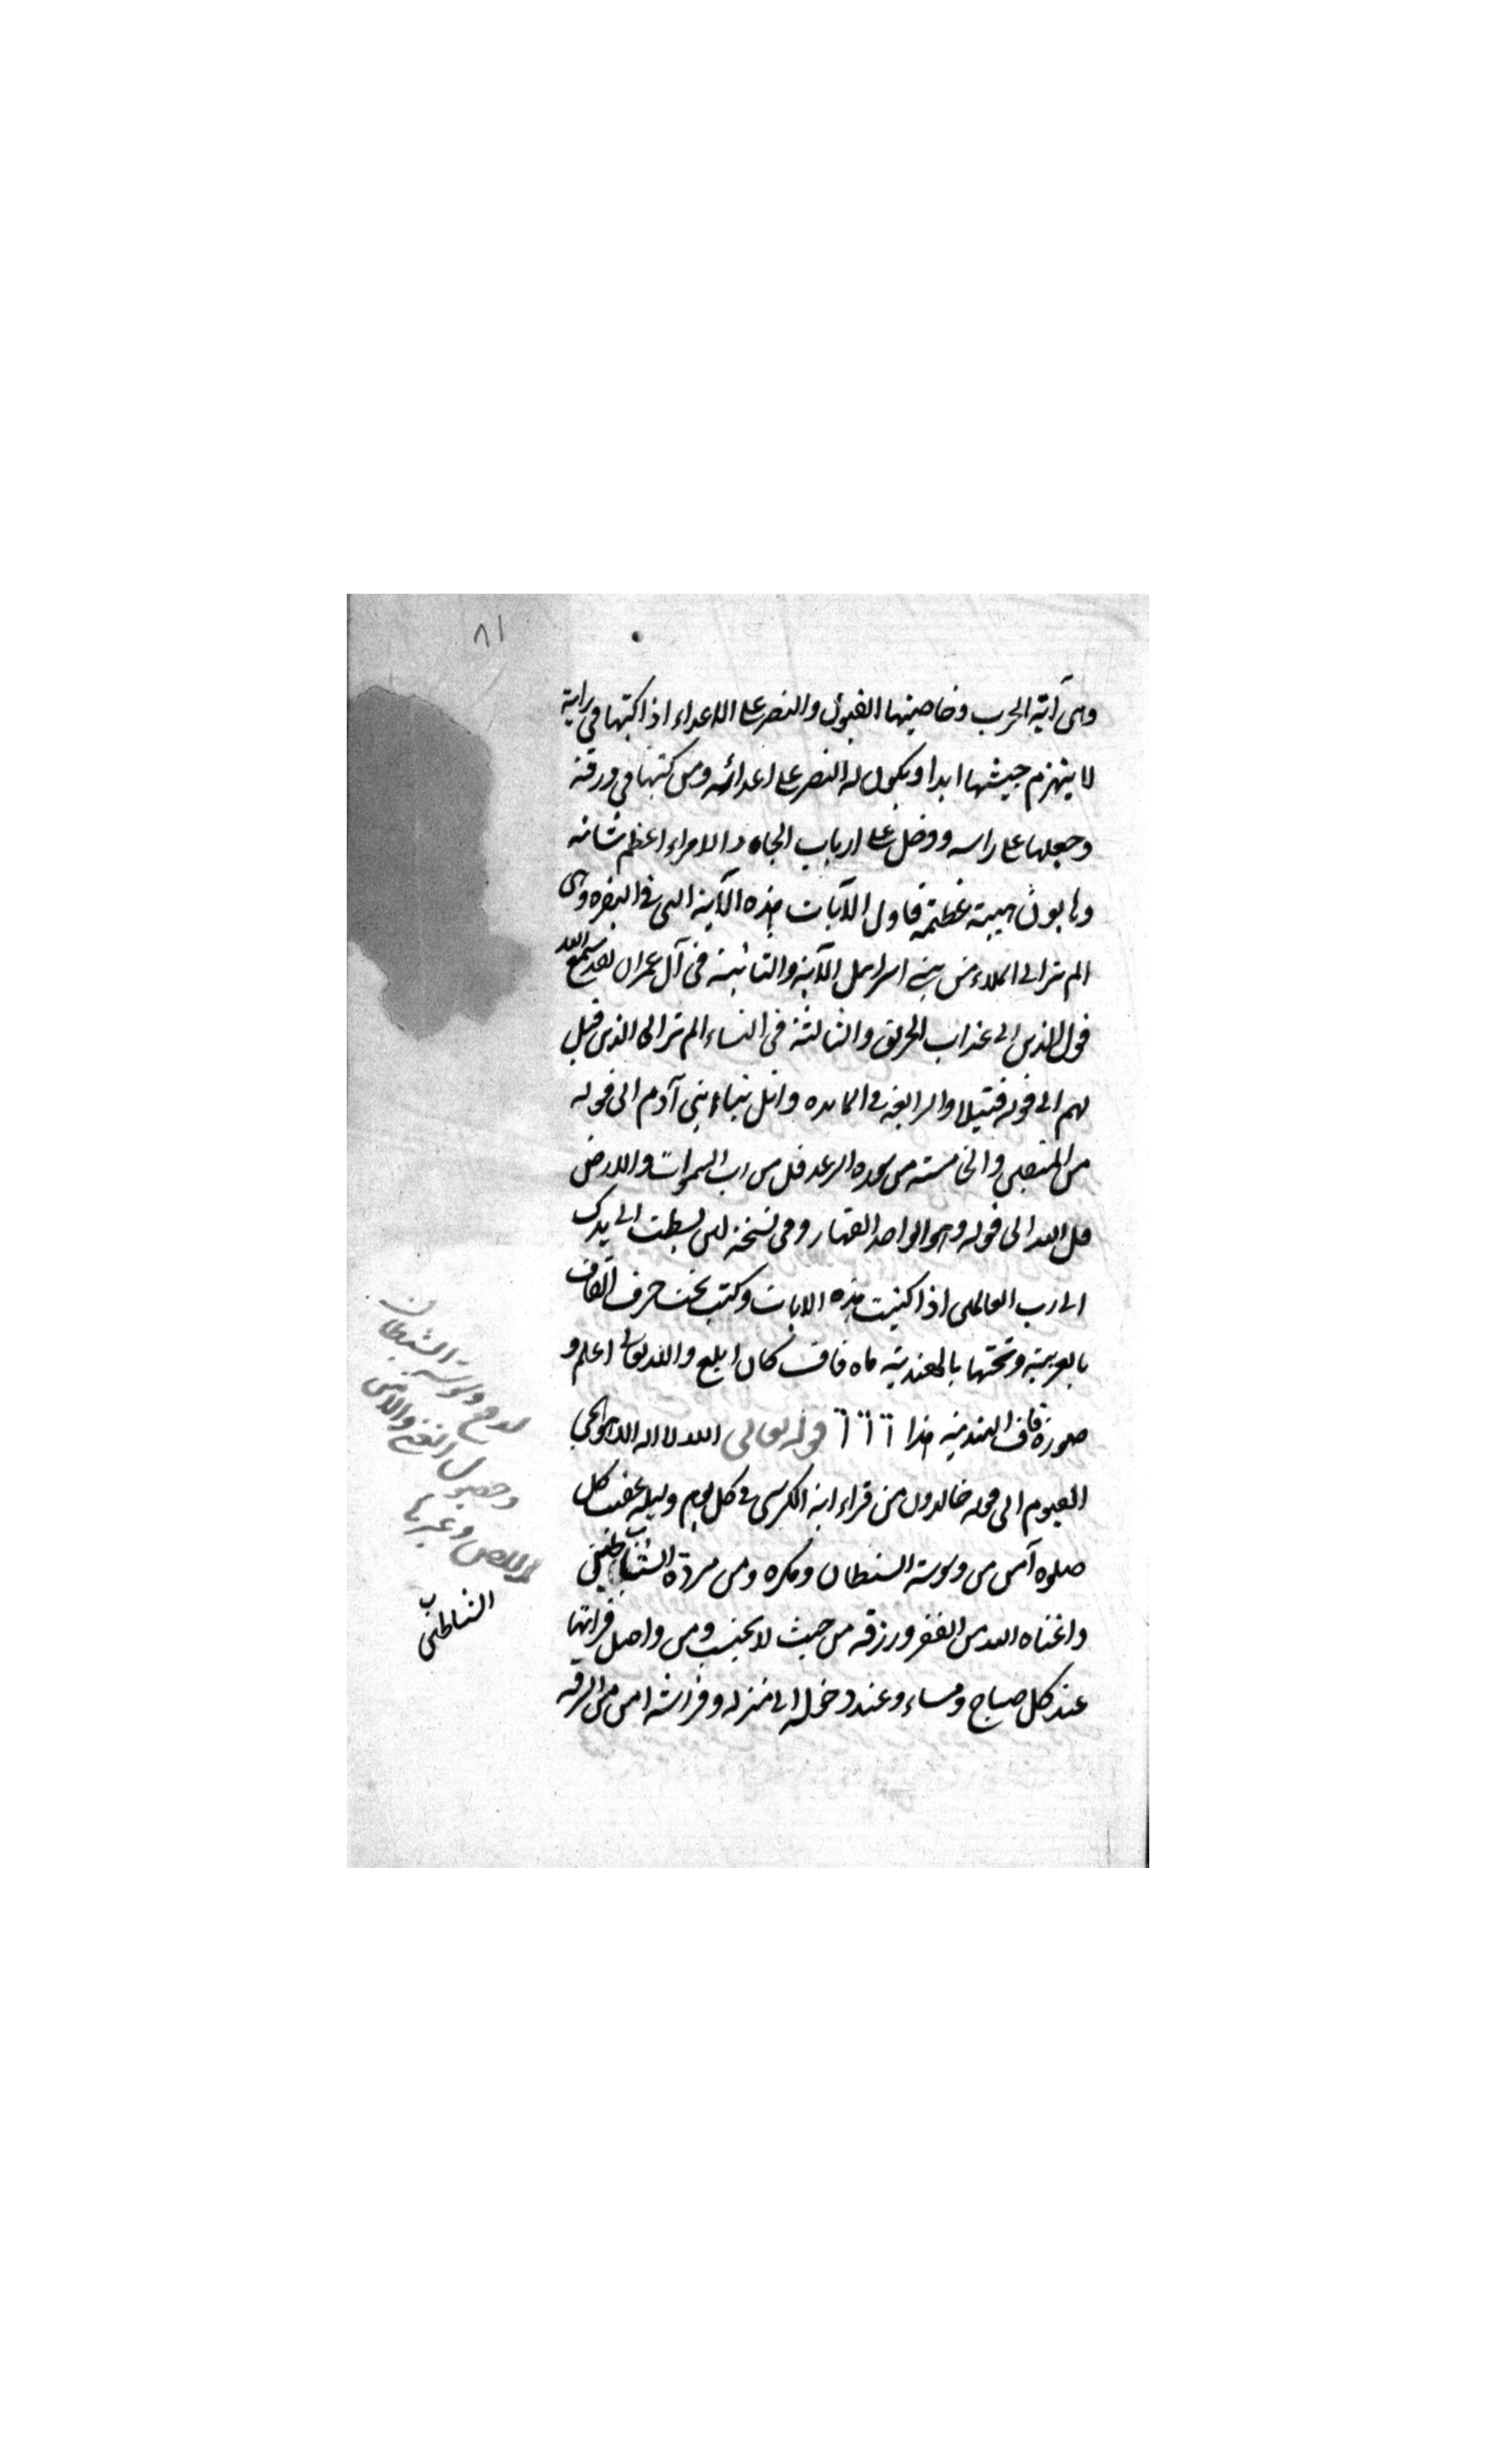 ٨١
وهى آية الحرب وخاصيتها القبول والنصر على الاعداء اذا كتبتها فى راية
لا ينهزم جيشها ابدا ويكون له النصر على اعدائه ومن كتبها فى ورقة
وجعلها على راسه ودخل على ارباب الجاه والامراء اعظم شانه
وهابون هيبته عظمة فاول الآيات هذه الآية التى فى البقره وهى
الم تر الى الملاء من بنى اسرائيل الآية والثانية فى آل عمران لقد سمع الله
قول الذين الى عذاب الحريق والثالثة فى النساء الم تر الى الذين قيل
لهم الى قوله فتيلا والرابعة فى المايده واتل نباء ابنى آدم الى قوله
من المتقين والخامسة من سوره الرعد قل من رب السموات والارض
قل الله الى قوله وهو الواحد القهار وفى نسخة لئن بسطت الى يدك
الى رب العالمين اذا كتبت هذه الايات وكتب تحت حرف القاف
بالعربية وتحتها بالهندية ماه قاف كان ابلغ والله تعالى اعلم و
صورة قاف الهندية هذا آ آ آ قوله تعالى الله لا اله الا هو الحى
القيوم الى قوله خالدون من قراء اية الكرسى فى كل يوم وليلة عقيب كل
صلوه آمن من وسوسة الشيطان ومكره ومن مردة الشياطين
واغناه الله من الفقر ورزقه من حيث لا يحتسب ومن واصل قرائتها
عند كل صباح ومساء وعند دخوله الى منزله وفراشه امن من السرقة
لدفع وسوسة الشيطان
وحصول الغنى والامن
من اللص وغيرها
الشياطين